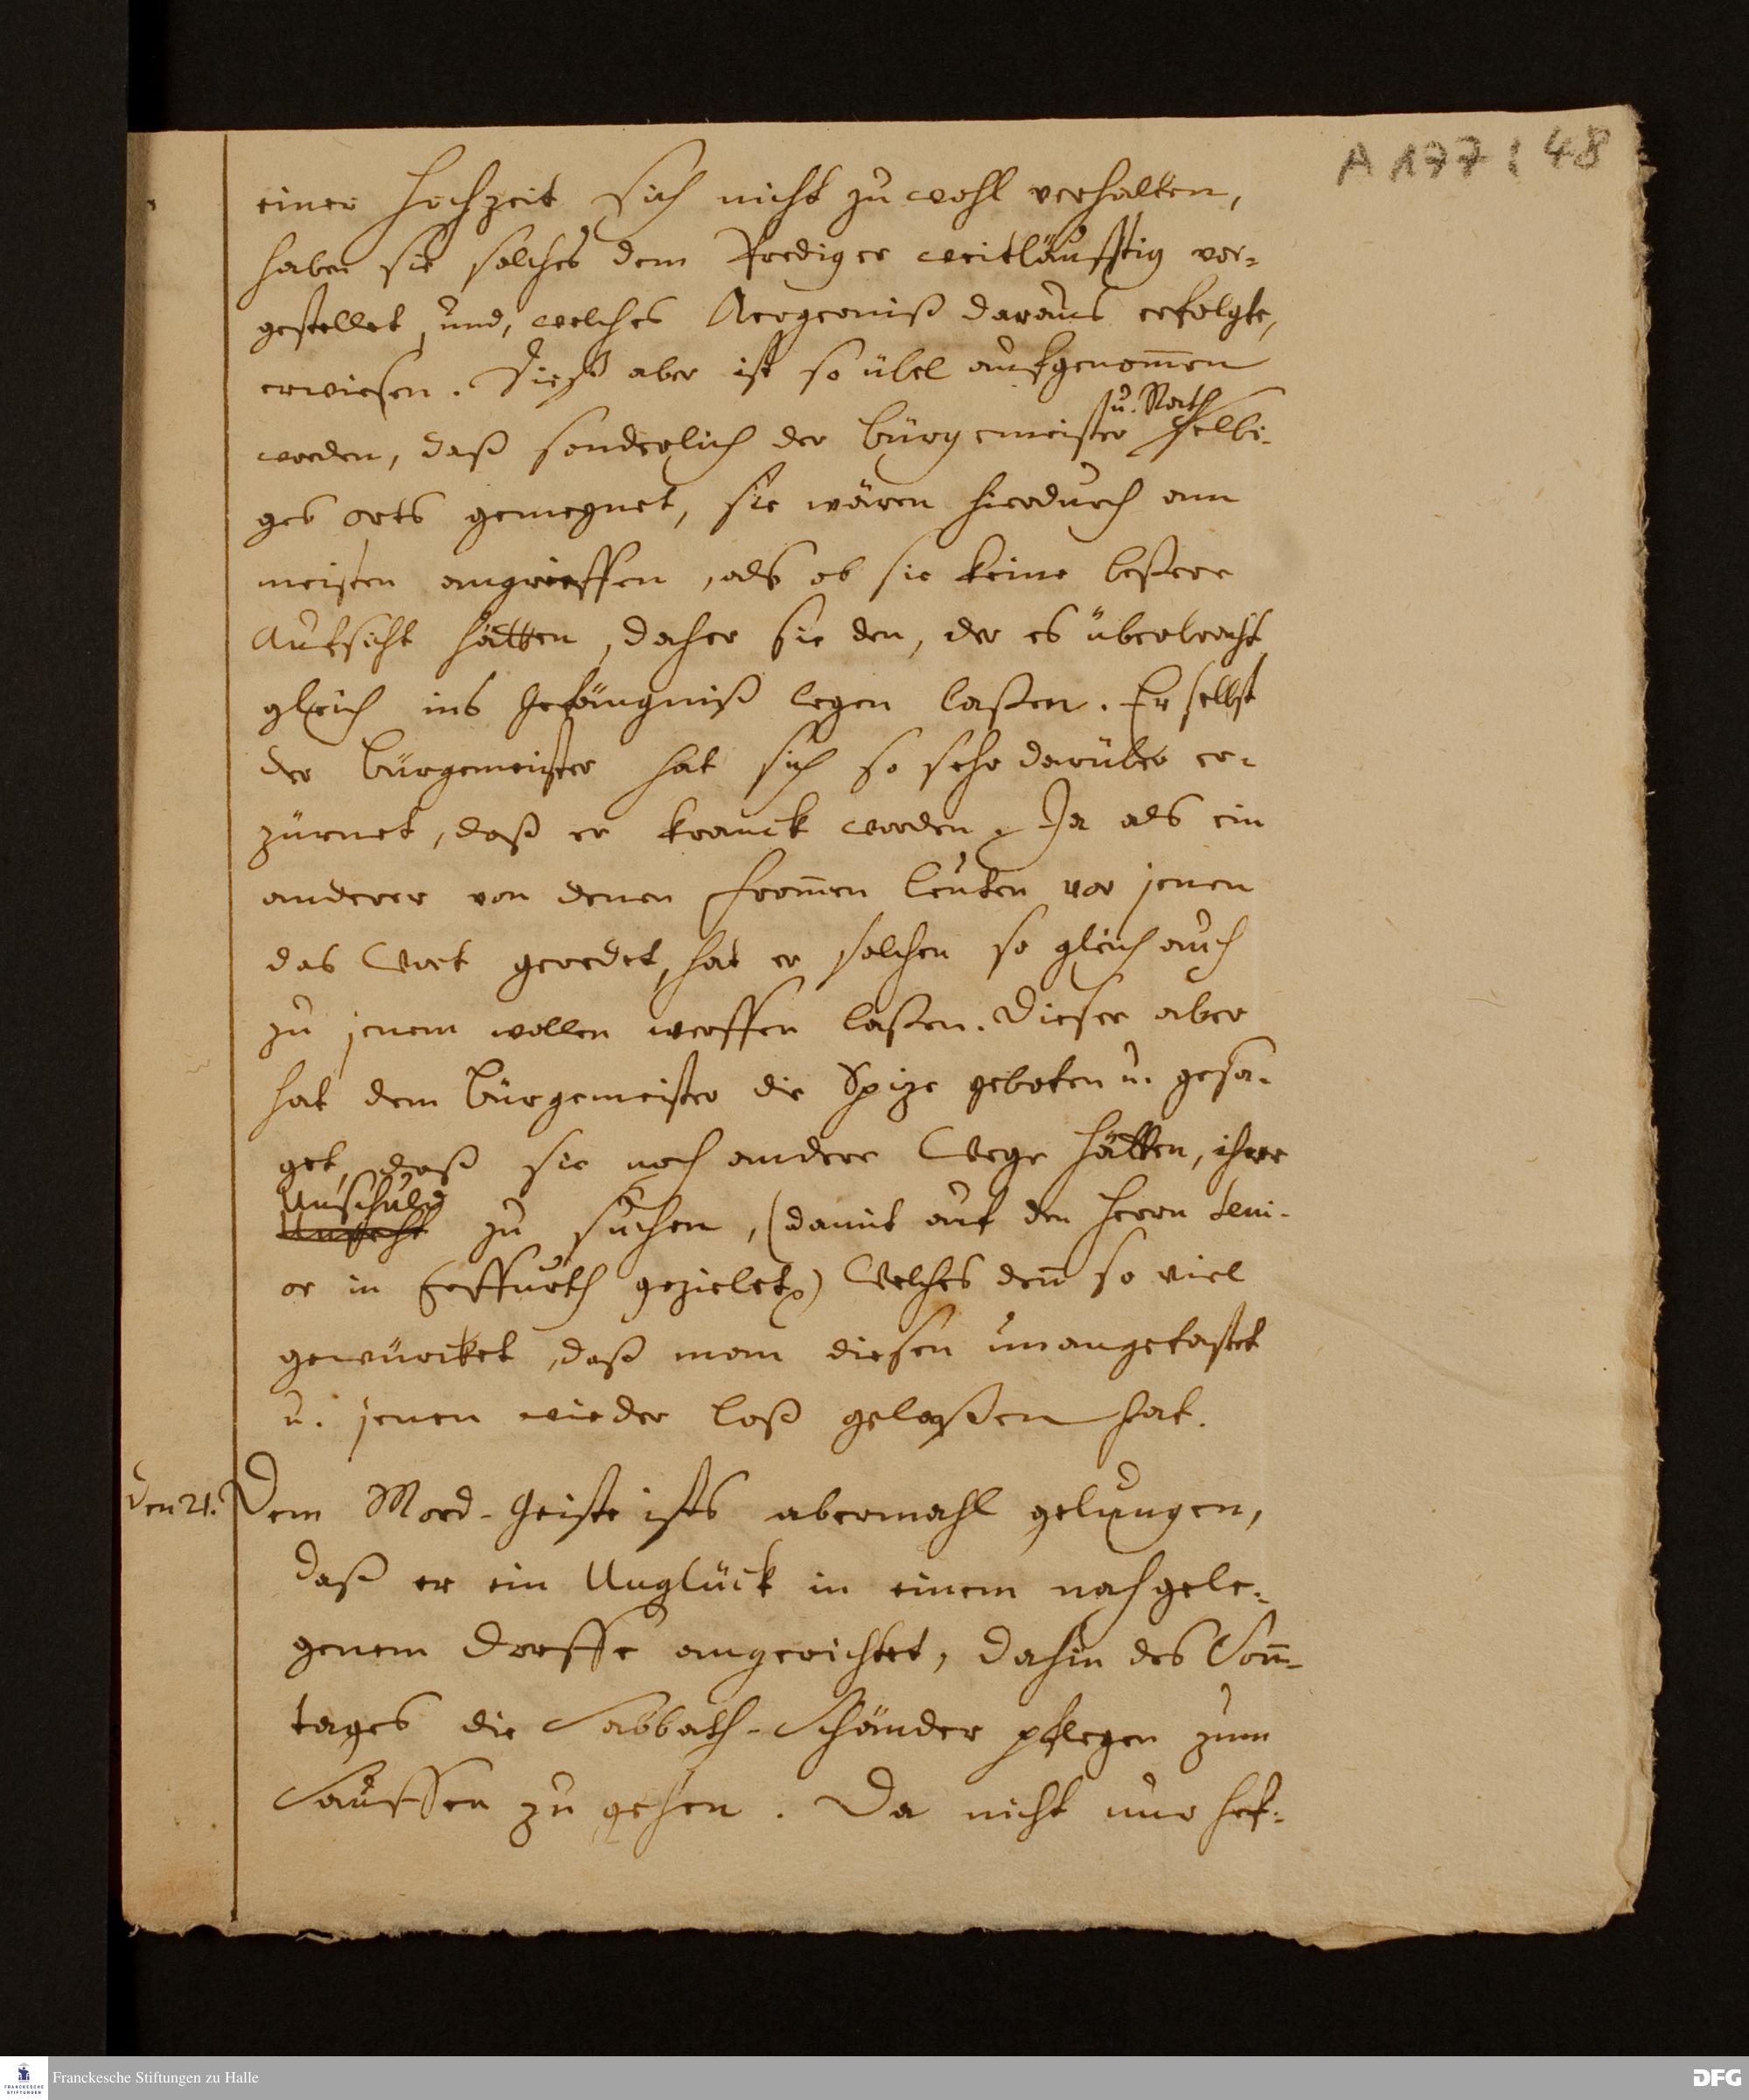 A 177 : 48
einer Hochzeit sich nicht zu wohl verhalten,
haben sie solches dem Prediger weitläufftig vor-
gestellet, und, welches Aergerniß daraus erfolgte,
erwiesen. Dieß aber ist so übel aufgenom̄en
u. Rath
worden, daß sonderlich der Bürgemeister selbi-
ges Orts gemeynet, sie wären hierdurch am
meisten angrieffen, als ob sie keine beßere
Aufsicht hätten, daher sie den, der es überbracht
gleich ins Gefängniß legen laßen. Er selbst
der Bürgemeister hat sich so sehr darüber er-
zürnet, daß er kranck worden. Ja als ein
anderer von denen from̄en Leuten vor jenen
das Wort geredet, hat er solchen so gleich auch
zu jenem wollen werffen laßen. Dieser aber
hat dem Bürgemeister die Spize geboten u. gesa-
get, daß sie noch andere Wege hätten, ihre
Unschuld
zu suchen, (damit auf den Herrn Seni-
or in Erffurth gezielet) Welches den̄ so viel
gewürcket, daß man diesen unangetastet
u. jenen wieder loß gelaßen hat.
Den 21. Dem Mord-Geiste ists abermahl gelungen,
daß er ein Unglück in einem nahgele-
genem Dorffe angerichtet, dahin des Son̄-
tages die Sabbath-Schänder pflegen zum
Sauffen zu gehen. Da nicht nur hef-
Franckesche Stiftungen zu Halle
FRANCKESCHE
STIFTUNGEN
DFG